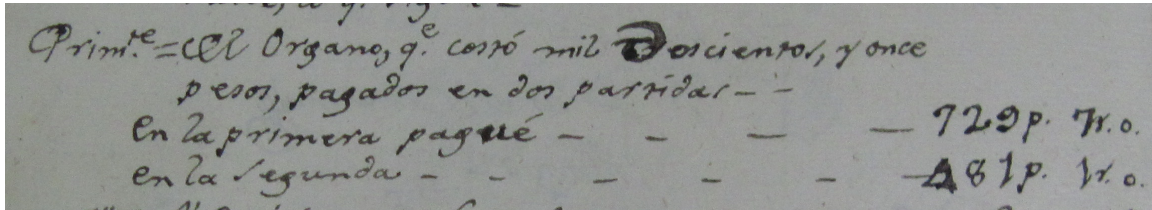 Prim.te = El Organo, q.e costó mil Doscientos, y once
pesos, pagados en dos partidas - -
en la primera pagué - - - - 729 p. 7 r. o.
en la segunda - - - - - - 481 p. 1 r. o.